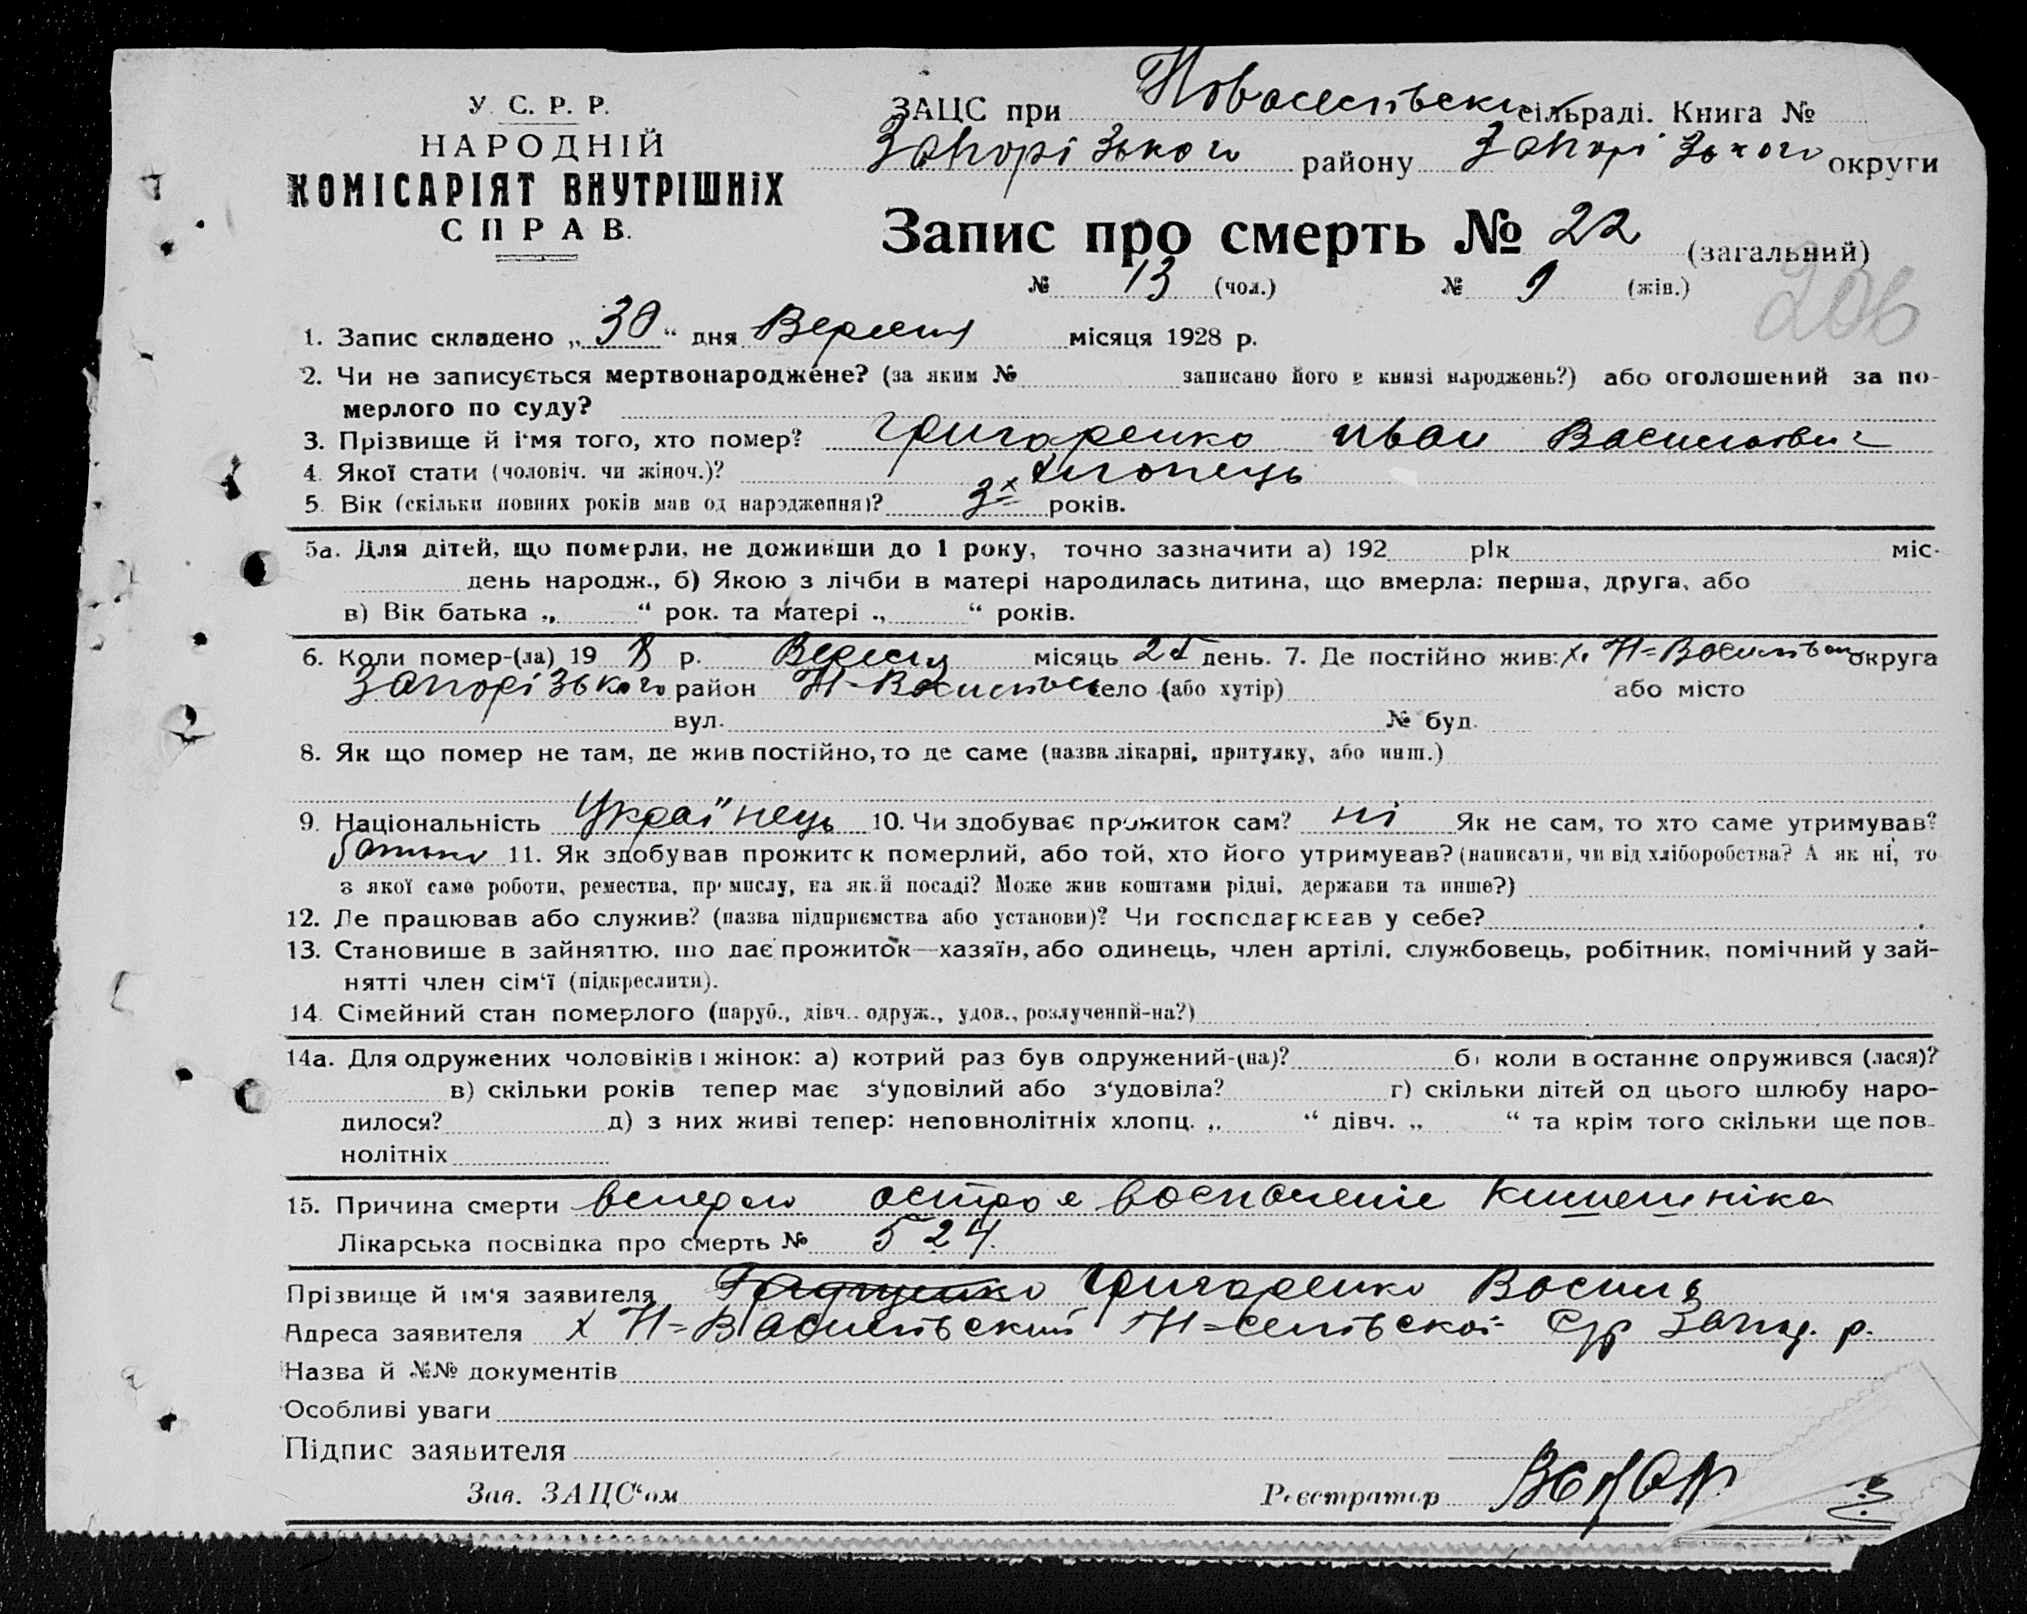 У. С. Р. Р.
НАРОДНІЙ
КОМІСАРІЯТ ВНУТРІШНІХ
СПРАВ.
ЗАЦС при сільраді. Книга №
Запорізького району Запорізького округи
Запис про смерть № 22 (загальний)
№ 13 (чол.) № 9 (жін.)
206
1. Запис складено „ 30 “ дня Вересня місяця 1928 р.
2. Чи не записується мертвонароджене? (за яким № записано його в книзі народжень?) або оголошений за по-
мерлого по суду?
3. Прізвище й і‘мя того, хто помер? Григоренко Иван Васильович
4. Якої стати (чоловіч. чи жіноч.)? хлопець
5. Вік (скільки повних років мав од народження)? 3х років.
5а. Для дітей, що померли, не доживши до 1 року, точно зазначити а) 192 рік міс.
день народж., б) Якою з лічби в матері народилась дитина, що вмерла: перша, друга, або
в) Вік батька „ “ рок. та матері „ “ років.
6. Коли помер-(ла) 19 8 р. Вересня місяць 25 день. 7. Де постійно жив: х. Н=Васильвск округа
Запорізького район Н-Васильвск село (або хутір) або місто
вул. № буд.
8. Як що помер не там, де жив постійно, то де саме (назва лікарні, притулку, або инш.)
9. Національність Українець 10. Чи здобуває прожиток сам? ні Як не сам, то хто саме утримував?
батько 11. Як здобував прожиток померлий, або той, хто його утримував? (написати, чи від хліборобства? А як ні, то
з якої саме роботи, ремества, промислу, на якій посаді? Може жив коштами рідні, держави та инше?)
12. Де працював або служив? (назва підприємства або установи)? Чи господарював у себе?
13. Становише в зайняттю, що дає прожиток—хазяїн, або одинець, член артілі, службовець, робітник, помічний у зай-
нятті член сім‘ї (підкреслити).
14. Сімейний стан померлого (паруб., дівч., одруж., удов., розлучений-на?)
14а. Для одружених чоловіків і жінок: а) котрий раз був одружений-(на)? б) коли в останнє одружився (лася)?
в) скільки років тепер має з‘удовілий або з‘удовіла? г) скільки дітей од цього шлюбу наро-
дилося? д) з них живі тепер: неповнолітніх хлопц. „ “ дівч. „ “ та крім того скільки ще пов-
нолітніх
15. Причина смерти острое воспаление кишешніка
Лікарська посвідка про смерть № 524.
Прізвище й ім‘я заявителя Григоренко Василь
Адреса заявителя х Н=Васильвский Н=сельвской С/р Запор. р.
Назва й №№ документів
Особливі уваги
Підпис заявителя
Зав. ЗАЦС‘ом Реєстратор